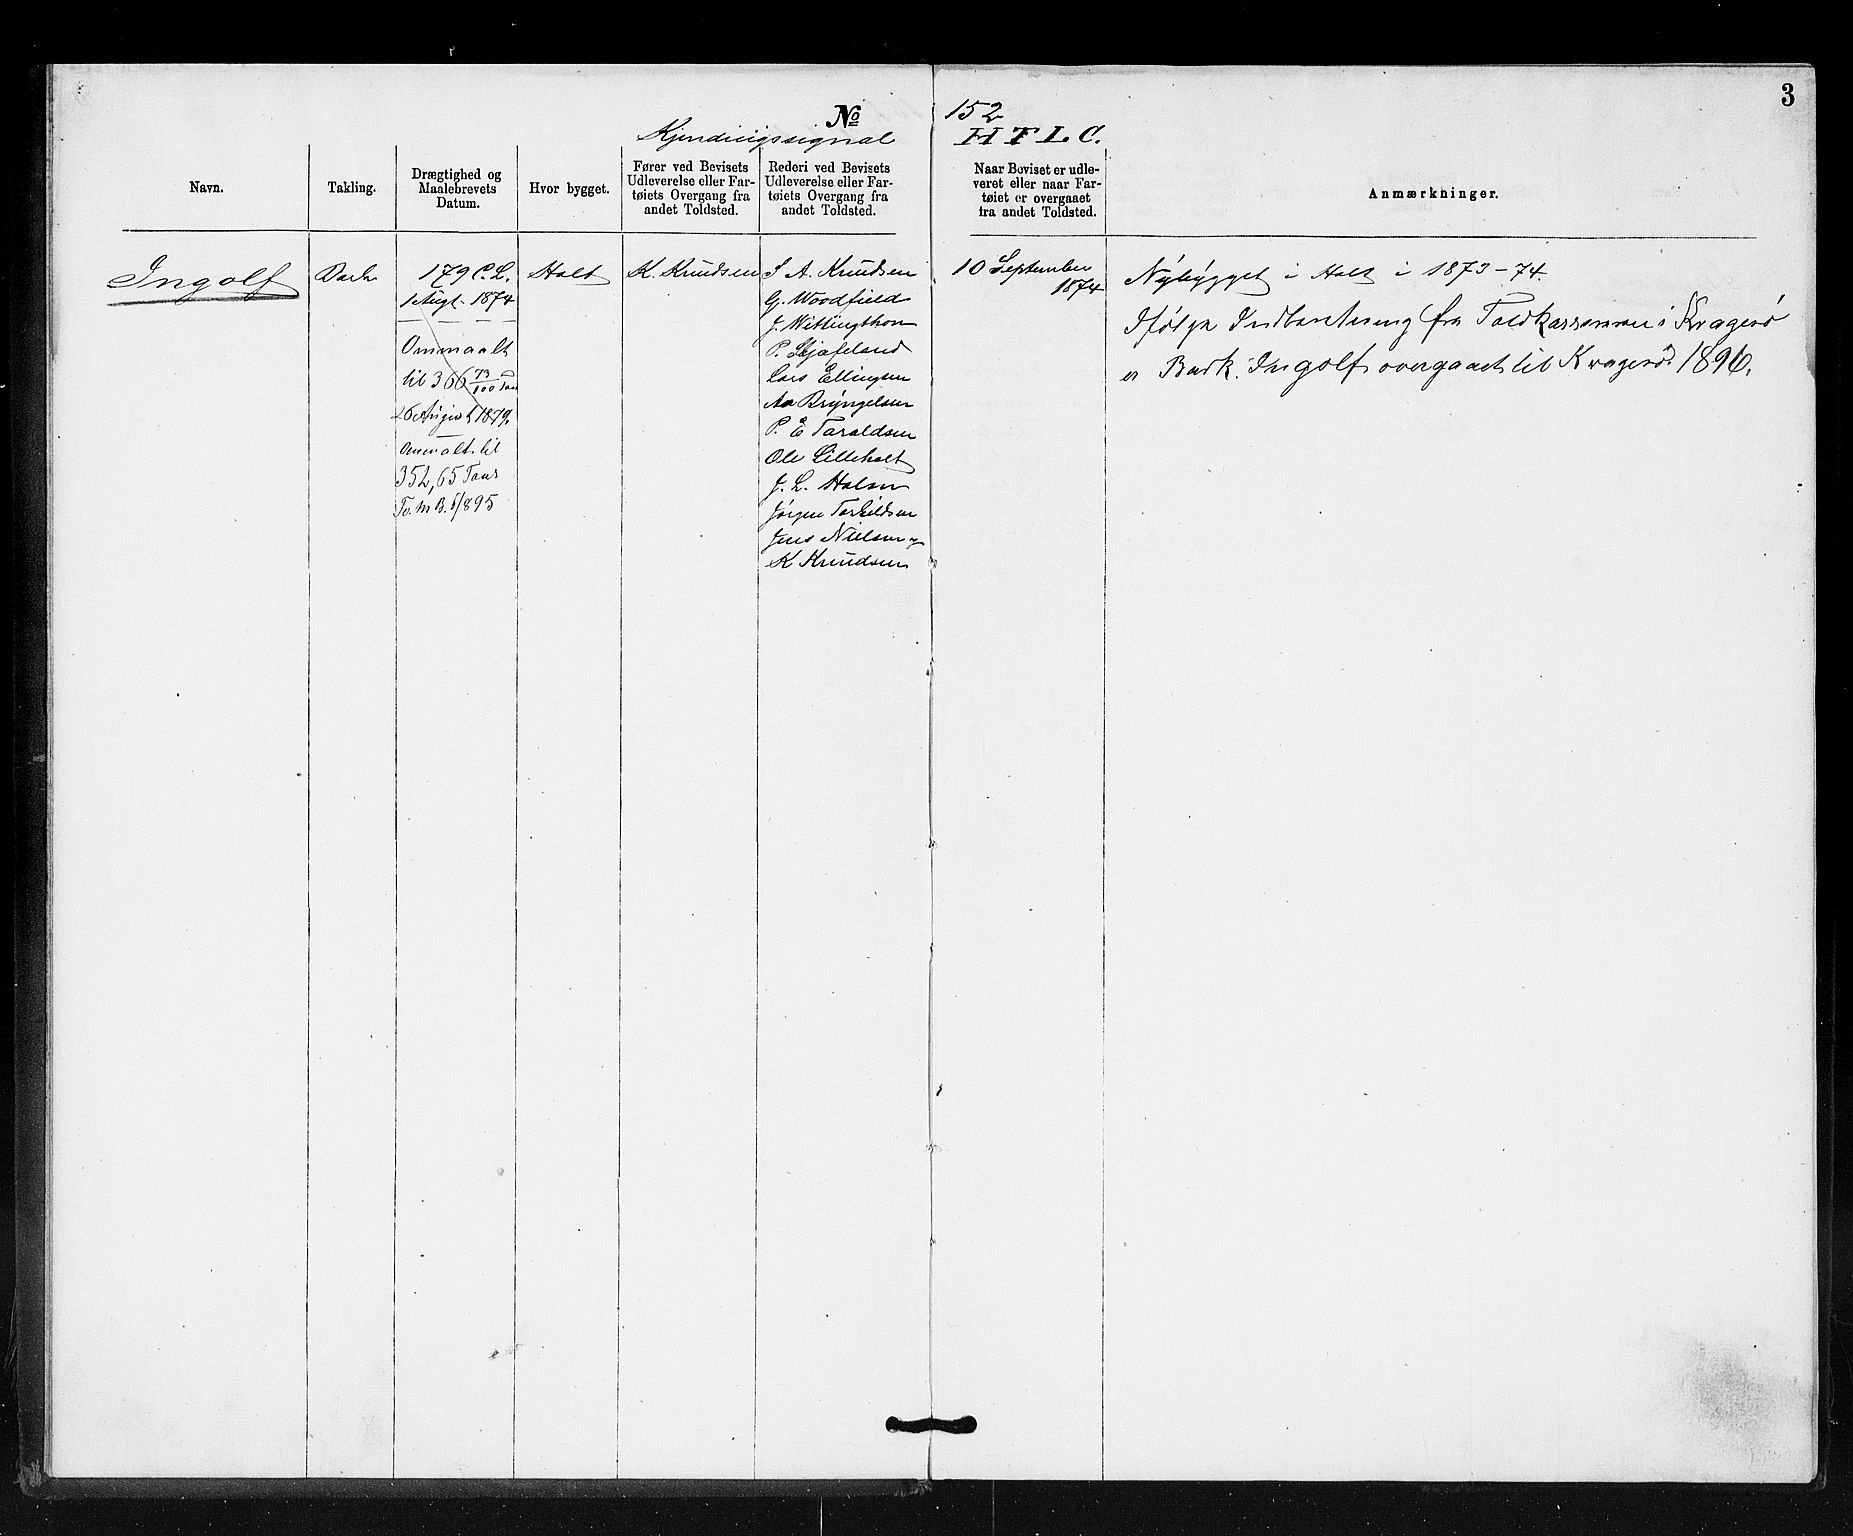 3
№ 152
Kjendingssignal H T L C.
Navn.
Takling.
Drægtighed og
Maalebrevets
Datum.
Hvor bygget.
Fører ved Bevisets
Udleverelse eller Far-
tøiets Overgang fra
andet Toldsted.
Rederi ved Bevisets
Udleverelse eller Far-
tøiets Overgang fra
andet Toldsted.
Naar Beviset er udle-
veret eller naar Far-
tøiet er overgaaet
fra andet Toldsted.
Anmærkninger.
Ingolf
Bark
179 C. L.
1 Augt. 1874
Ommaalt
til 366 73/100 Tons
26 August 1879.
Ommalt til
352,65 Tons
To. M B. 6/895
Holt
K. Knudsen
S A. Knudsen
G. Woodfield
J. Wittingthon
P. Skjafeland
Lars Ellingsen
Aa Bryngelsen
P. E Taraldsen
Ole Lilleholt
J. L. Halsen
Jörgen Terkildsen
Jens Nielsen og
K Knudsen
10 September
1874
Nybygget i Holt i 1873-74.
Ifölge Indberetning fra Toldkassereren i Kragerö
er Bark. Ingolf overgaaet til Kragerö 1896.